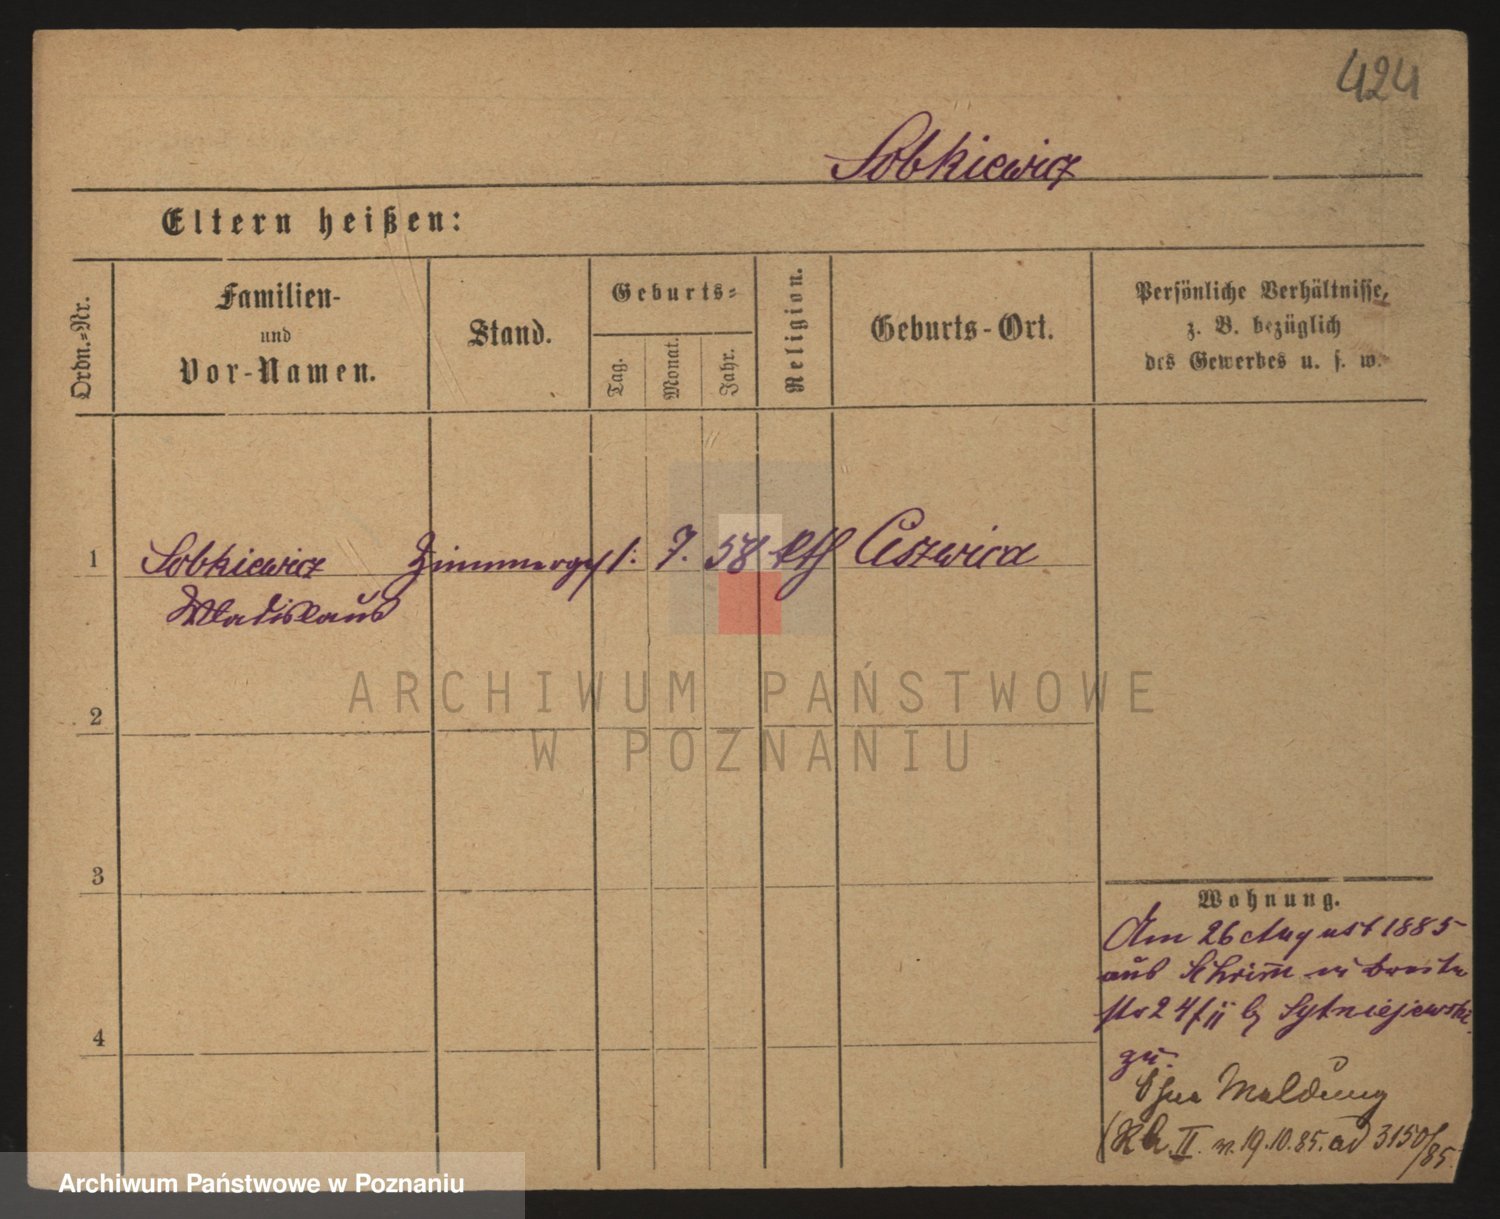 424
Sobkiewicz
Eltern heißen:
Ordn.=Nr.
Familien-
und
Vor-Namen.
Stand.
Geburts=
Tag.
Monat.
Jahr.
Religion.
Geburts-Ort.
Persönliche Verhältnisse,
z. B. bezüglich
des Gewerbes u. s. w.
1 Sobkiewicz Zimmerges 1. 7. 58 kth Ciszwica
Wladislaus
2
3
4
Wohnung.
Am 26 August 1885
aus Schrimm Breite
str 24/II b Sytniejewski
zu.
Ohne Meldung
II. v. 19.10.85. ad 3150/85.
ARCHIWUM PAŃSTWOWE
W POZNANIU
Archiwum Państwowe w Poznaniu